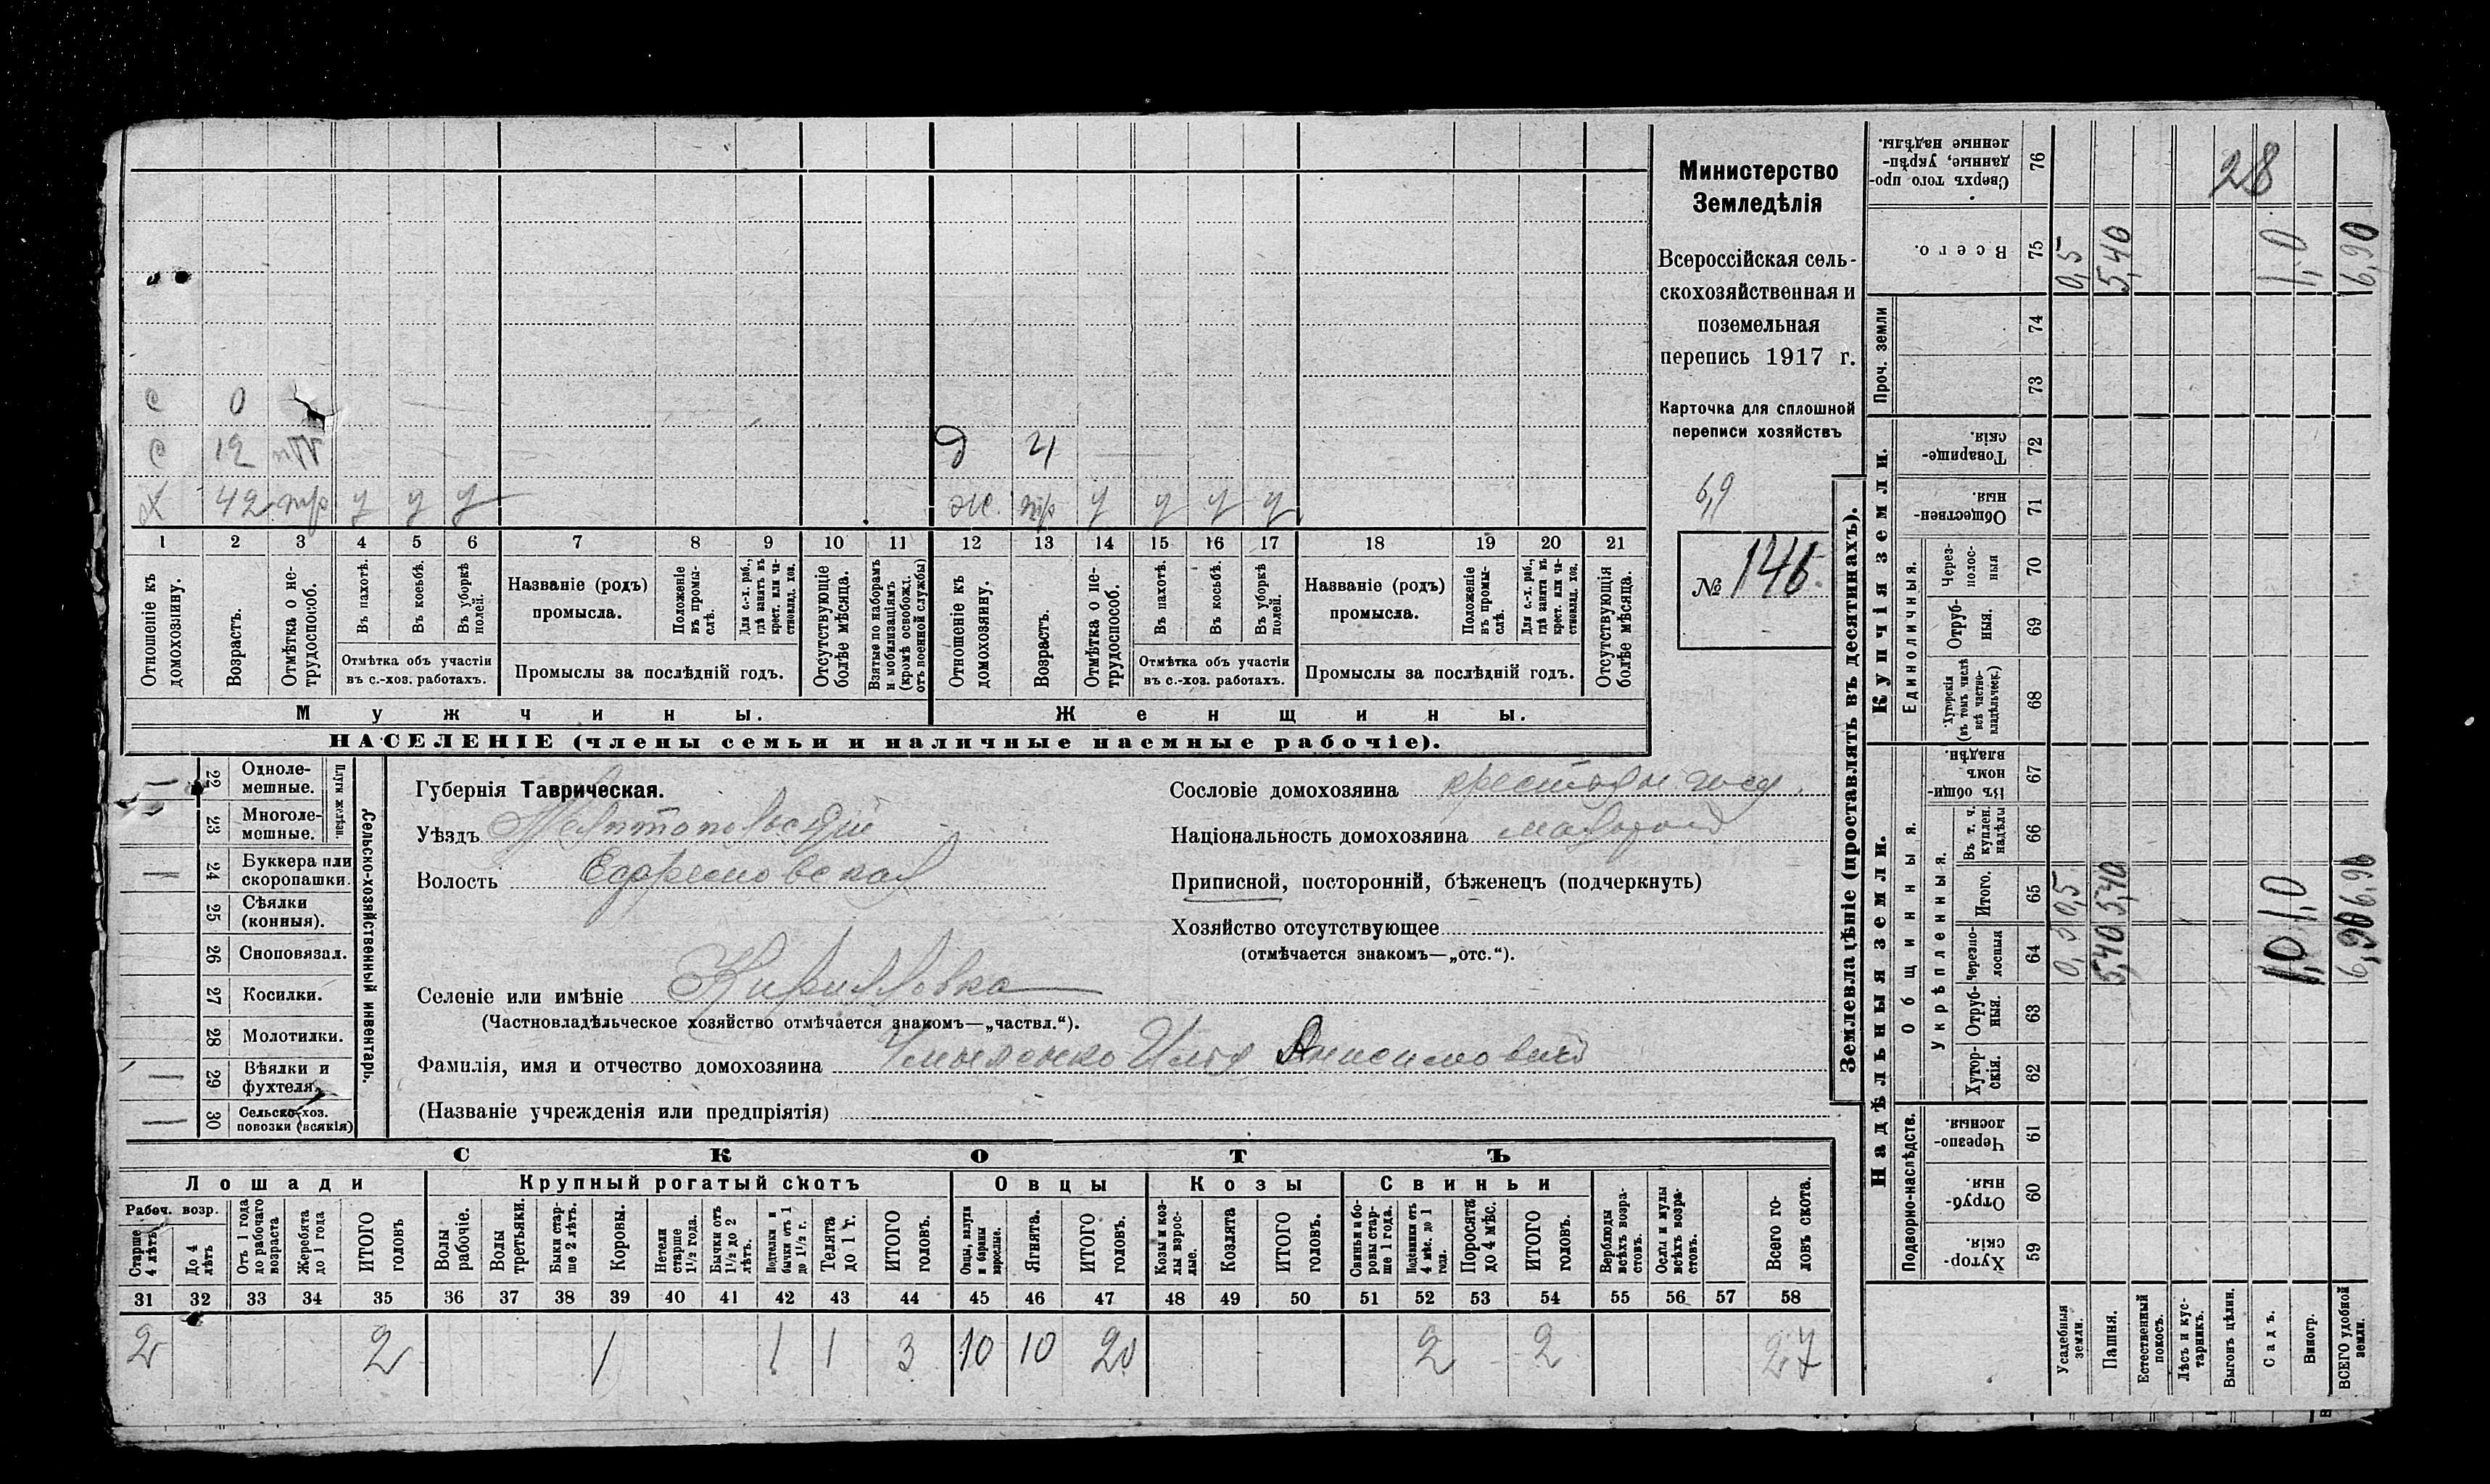 С 0
С 12 н/т д 4
Х 42 тр у у у ж. тр у у у у
1 2 3 4 5 6 7 8 9 10 11 12 13 14 15 16 17 18 19 20 21
Отношеніе къ домохозяину.
Возрастъ.
Отмѣтка о не-трудоспособ.
Въ пахотѣ.
Въ косьбѣ.
Въ уборкѣ полей.
Отмѣтка объ участіи въ с.-хоз. работахъ.
Названіе (родъ) промысла.
Положеніе въ промы-слѣ.
Для с.-х. раб., гдѣ занятъ въ крест. или ча-стновлад. хоз.
Промыслы за послѣдній годъ.
Отсутствующіе болѣе мѣсяца.
Взятые по наборамъ и мобилизаціямъ (кромѣ освобожд. отъ военной службы)
Отношеніе къ домохозяину.
Возрастъ.
Отмѣтка о не-трудоспособ.
Въ пахотѣ.
Въ косьбѣ.
Въ уборкѣ полей.
Отмѣтка объ участіи въ с.-хоз. работахъ.
Названіе (родъ) промысла.
Положеніе въ промы-слѣ.
Для с.-х. раб., гдѣ занята въ крест. или ча-стновлад. хоз.
Промыслы за послѣдній годъ.
Отсутствующія болѣе мѣсяца.
Мужчины. Женщины.
НАСЕЛЕНІЕ (члены семьи и наличные наемные рабочіе).
Министерство
Земледѣлія
Всероссійская сель-
скохозяйственная и
поземельная
перепись 1917 г.
Карточка для сплошной
переписи хозяйствъ
6,9
№ 146.
22 Одноле-мешные.
23 Многоле-мешные.
Плуги желѣзн.
24 Буккера или скоропашки.
25 Сѣялки (конныя).
26 Сноповязал.
27 Косилки.
28 Молотилки.
29 Вѣялки и фухтеля.
30 Сельско-хоз. повозки (всякія)
Сельско-хозяйственный инвентарь.
Губернія Таврическая.
Уѣздъ Мелитопольскій
Волость Ефремовская
Селеніе или имѣніе Кирилловка
(Частновладѣльческое хозяйство отмѣчается знакомъ—„частвл.“).
Фамилія, имя и отчество домохозяина Илья Анисимовичъ
(Названіе учрежденія или предпріятія)
Сословіе домохозяина
Національность домохозяина малоросъ
Приписной, посторонній, бѣженецъ (подчеркнуть)
Хозяйство отсутствующее
(отмѣчается знакомъ—„отс.“).
СКОТЪ
Лошади Крупный рогатый скотъ Овцы Козы Свиньи
Рабоч. возр.
Старше 4 лѣтъ
До 4 лѣтъ
Отъ 1 года до рабочаго возраста
Жеребята до 1 года
ИТОГО головъ
Волы рабочіе.
Волы третьяки.
Быки стар-ше 2 лѣтъ.
Коровы.
Нетели старше 1½ года.
Бычки отъ 1½ до 2 лѣтъ.
Подтелки и бычки отъ 1 до 1½ г.
Телята до 1 г.
ИТОГО головъ.
Овцы, валухи и бараны взрослые.
Ягнята.
ИТОГО головъ.
Козы и коз-лы взрос-лые.
Козлята
ИТОГО головъ.
Свиньи и бо-ровы стар-ше 1 года.
Подсвинки отъ 4 мѣс. до 1 года.
Поросята до 4 мѣс.
ИТОГО головъ.
Верблюды всѣхъ возра-стовъ.
Ослы и мулы всѣхъ возра-стовъ.
Всего го-ловъ скота.
31 32 33 34 35 36 37 38 39 40 41 42 43 44 45 46 47 48 49 50 51 52 53 54 55 56 57 58
2 2 1 1 1 3 10 10 20 2 2 27
Землевладѣніе (проставлять въ десятинахъ).
Надѣльныя земли. Купчія земли. Проч. земли
Подворно-наслѣдств. Общинныя. Укрѣпленныя. Единоличныя.
Хутор-скія. 59
Отруб-ныя. 60
Черезпо-лосныя 61
Хутор-скія. 62
Отруб-ныя. 63
Черезпо-лосныя 64
Итого. 65
Въ т. ч. куплен. надѣлы 66
Въ общин-номъ владѣн. 67
Хуторскія (въ томъ числѣ всѣ частно-владѣльческ.) 68
Отруб-ныя. 69
Через-полос-ныя 70
Обществен-ныя. 71
Товарище-скія. 72
73
74
Всего. 75
Сверхъ того про-данные, укрѣп-ленные надѣлы. 76
28
Усадебныя земли. 0,5 0,5
Пашня. 5,40 5,40 5,40
Естественный покосъ.
Лѣсъ и кус-тарникъ.
Выгонъ цѣлин.
Садъ. 1,0 1,0 1,0
Виногр.
ВСЕГО удобной земли. 6,90 6,90 6,90